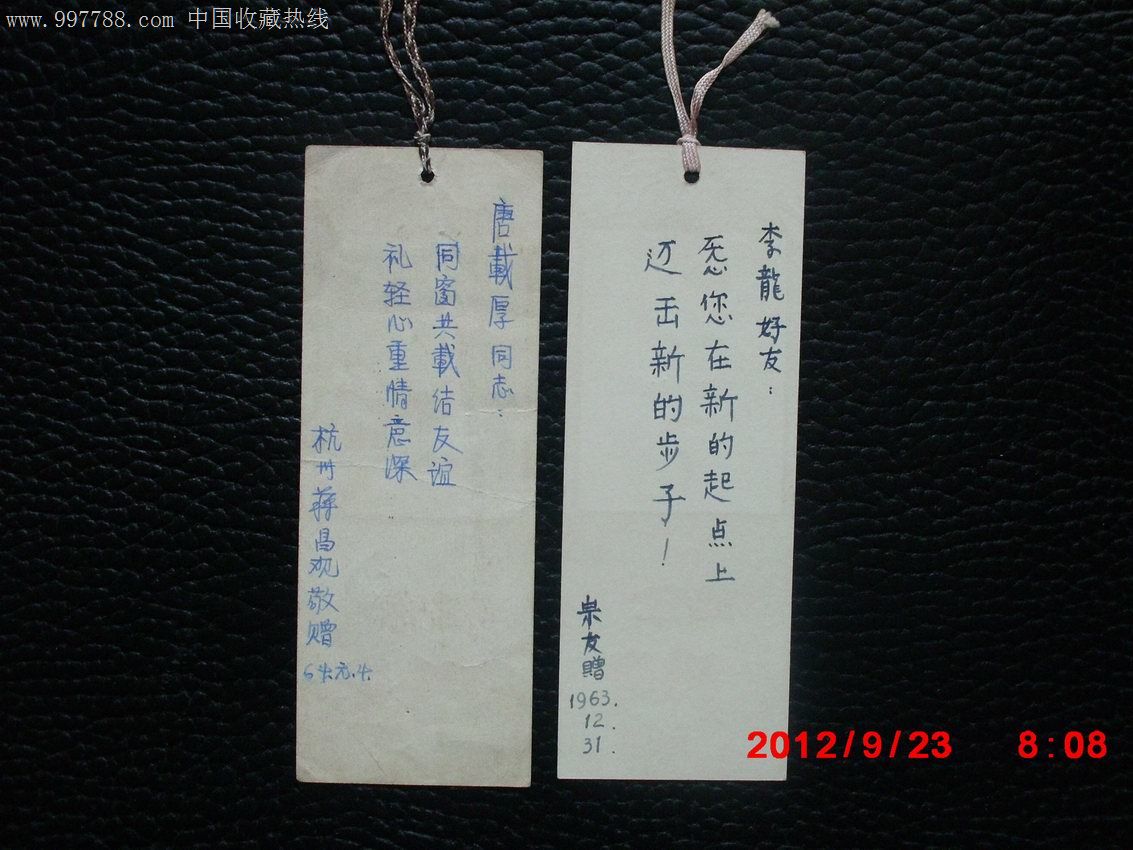 www.997788.com 中国收藏热线
唐載厚同志：
同窗共載结友谊
礼轻心重情意深
杭州蒋昌观敬赠
64.元.4.
李龍好友：
您在新的起点上
迈出新的步子！
友贈
1963.
12.
31.
2012/9/23 8:08